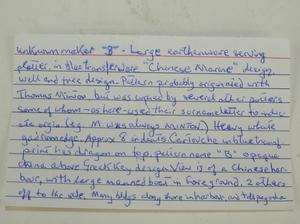 unknown maker "B" - Large earthenware serving
platter, in blue transferware "Chinese Marine" design,
well and tree design. Pattern probably originated with
Thomas Minton, but was copied by several other potters
some of whom - as here - used their surname letter to indic-
ate origin (eg. M was always MINTON). Heavy white
gadroon edge. Approx 8 indents Cartouche in blue trans-
print has dragon on top, pattern name "B" opaque
china above Greek Key design. View is of a Chinese har-
bour, with large manned boat in foreground, 2 others
off to the side. Many bldgs along shore in harbour, and